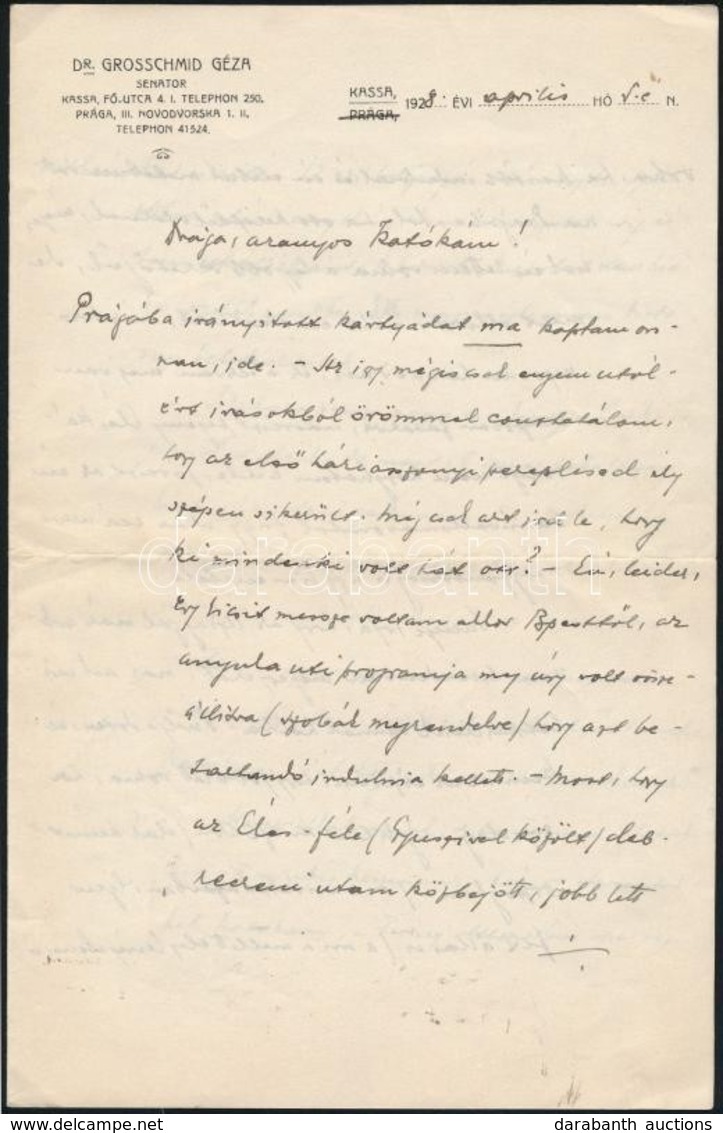 DR. GROSSCHMID GÉZA
SENATOR
KASSA, FŐ-UTCA 4. I. TELEPHON 250.
PRÁGA, III. NOVODVORSKA 1. II.
TELEPHON 41524.
KASSA,
PRÁGA, 1928. ÉVI április HÓ 5.-én N.
Drága, aranyos Katókám!
Prágába irányitott kártyádat ma kaptam on-
nan, ide. – Az igy mégis csak engem utól-
ért irásokból örömmel constatálom,
hogy az első háziasszonyi szereplésed ily
szépen sikerült. Még csak azt ird le, hogy
ki mindenki volt hát ott? – Én, leider,
egy kicsit messze voltam akkor Bpesttől, az
anyula uti programja meg úgy volt össze-
állitva (szobák megrendelve) hogy azt be-
tartandó indulnia kellett. – Most, hogy
az Éles-féle (Gyuszival közölt) deb-
reczeni utam közbejött, jobb lett
./.
darabanth
darabanth auctions